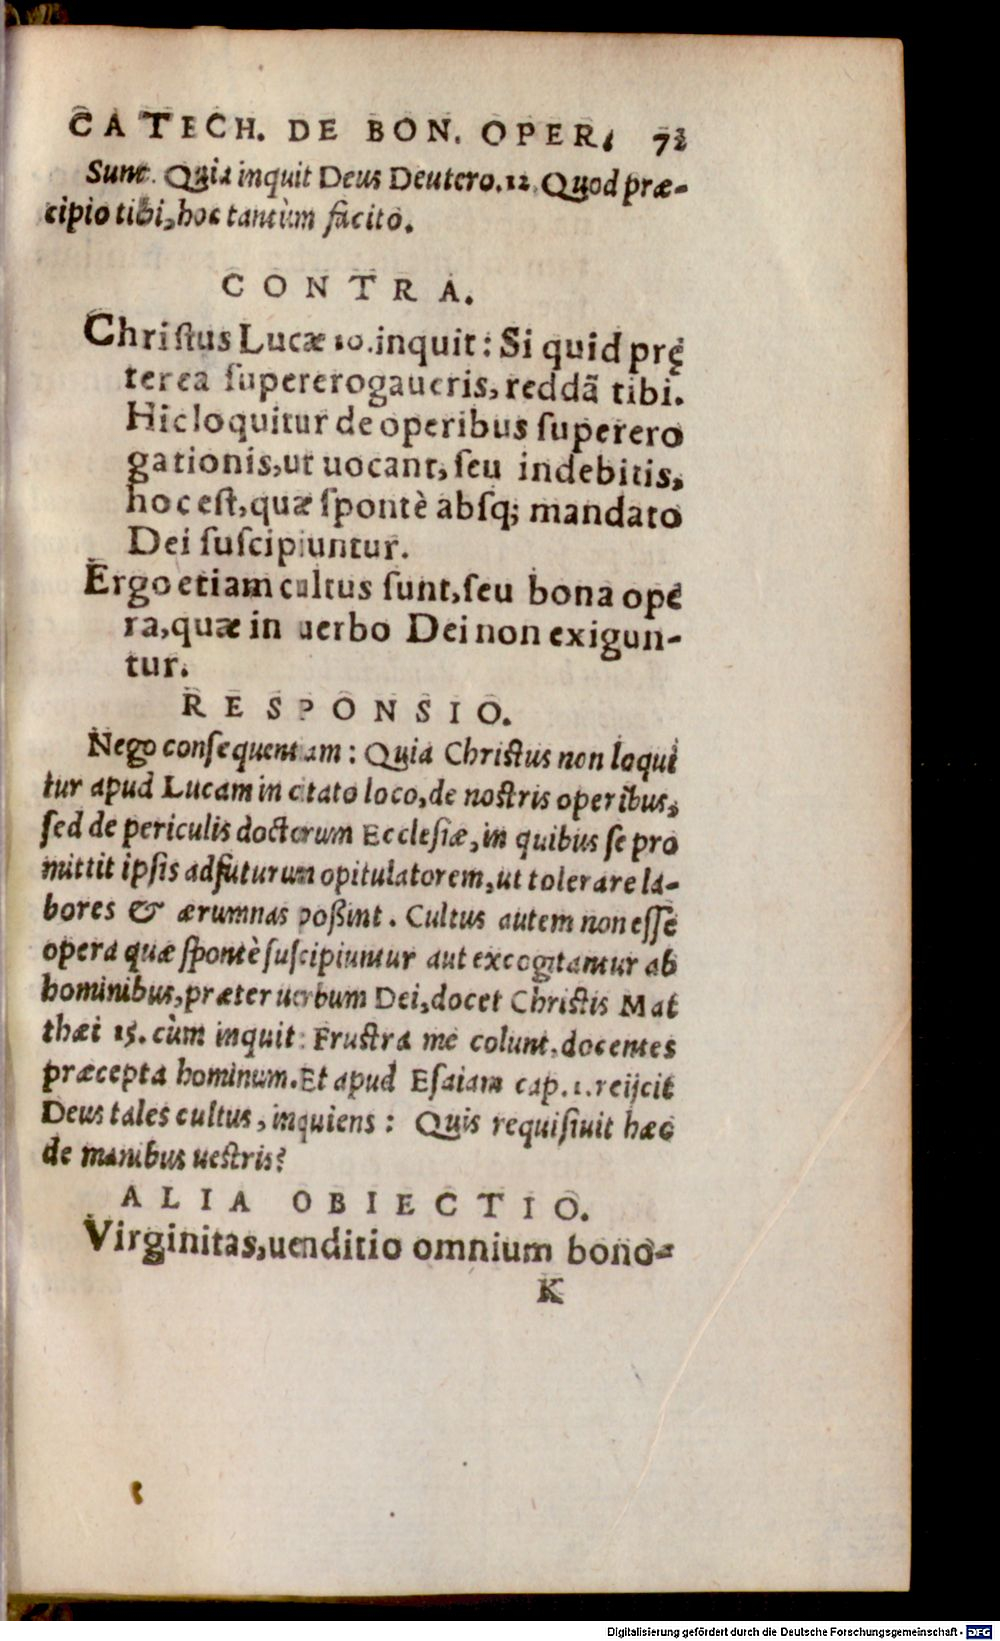 CATECH. DE BON. OPER. 73
Sunt. Quia inquit Deus Deutero. 12. Quod præ-
cipio tibi, hoc tantùm facito.
CONTRA.
Christus Lucæ 10. inquit: Si quid prę
terea supererogaueris, reddã tibi.
Hic loquitur de operibus superero
gationis, ut uocant, seu indebitis,
hoc est, quæ spontè absq; mandato
Dei suscipiuntur.
Ergo etiam cultus sunt, seu bona ope
ra, quæ in uerbo Dei non exigun-
tur.
RESPONSIO.
Nego consequentiam: Quia Christus non loqui
tur apud Lucam in citato loco, de nostris operibus,
sed de periculis doctorum Ecclesiæ, in quibus se pro
mittit ipsis adfuturum opitulatorem, ut tolerare la-
bores & ærumnas poßint. Cultus autem non esse
opera quæ spontè suscipiuntur aut excogitantur ab
hominibus, præter uerbum Dei, docet Christis Mat
thæi 15. cùm inquit: Frustra me colunt, docentes
præcepta hominum. Et apud Esaiam cap. 1. reijcit
Deus tales cultus, inquiens: Quis requisiuit hæc
de manibus uestris?
ALIA OBIECTIO.
Virginitas, uenditio omnium bono-
K
Digitalisierung gefördert durch die Deutsche Forschungsgemeinschaft - DFG